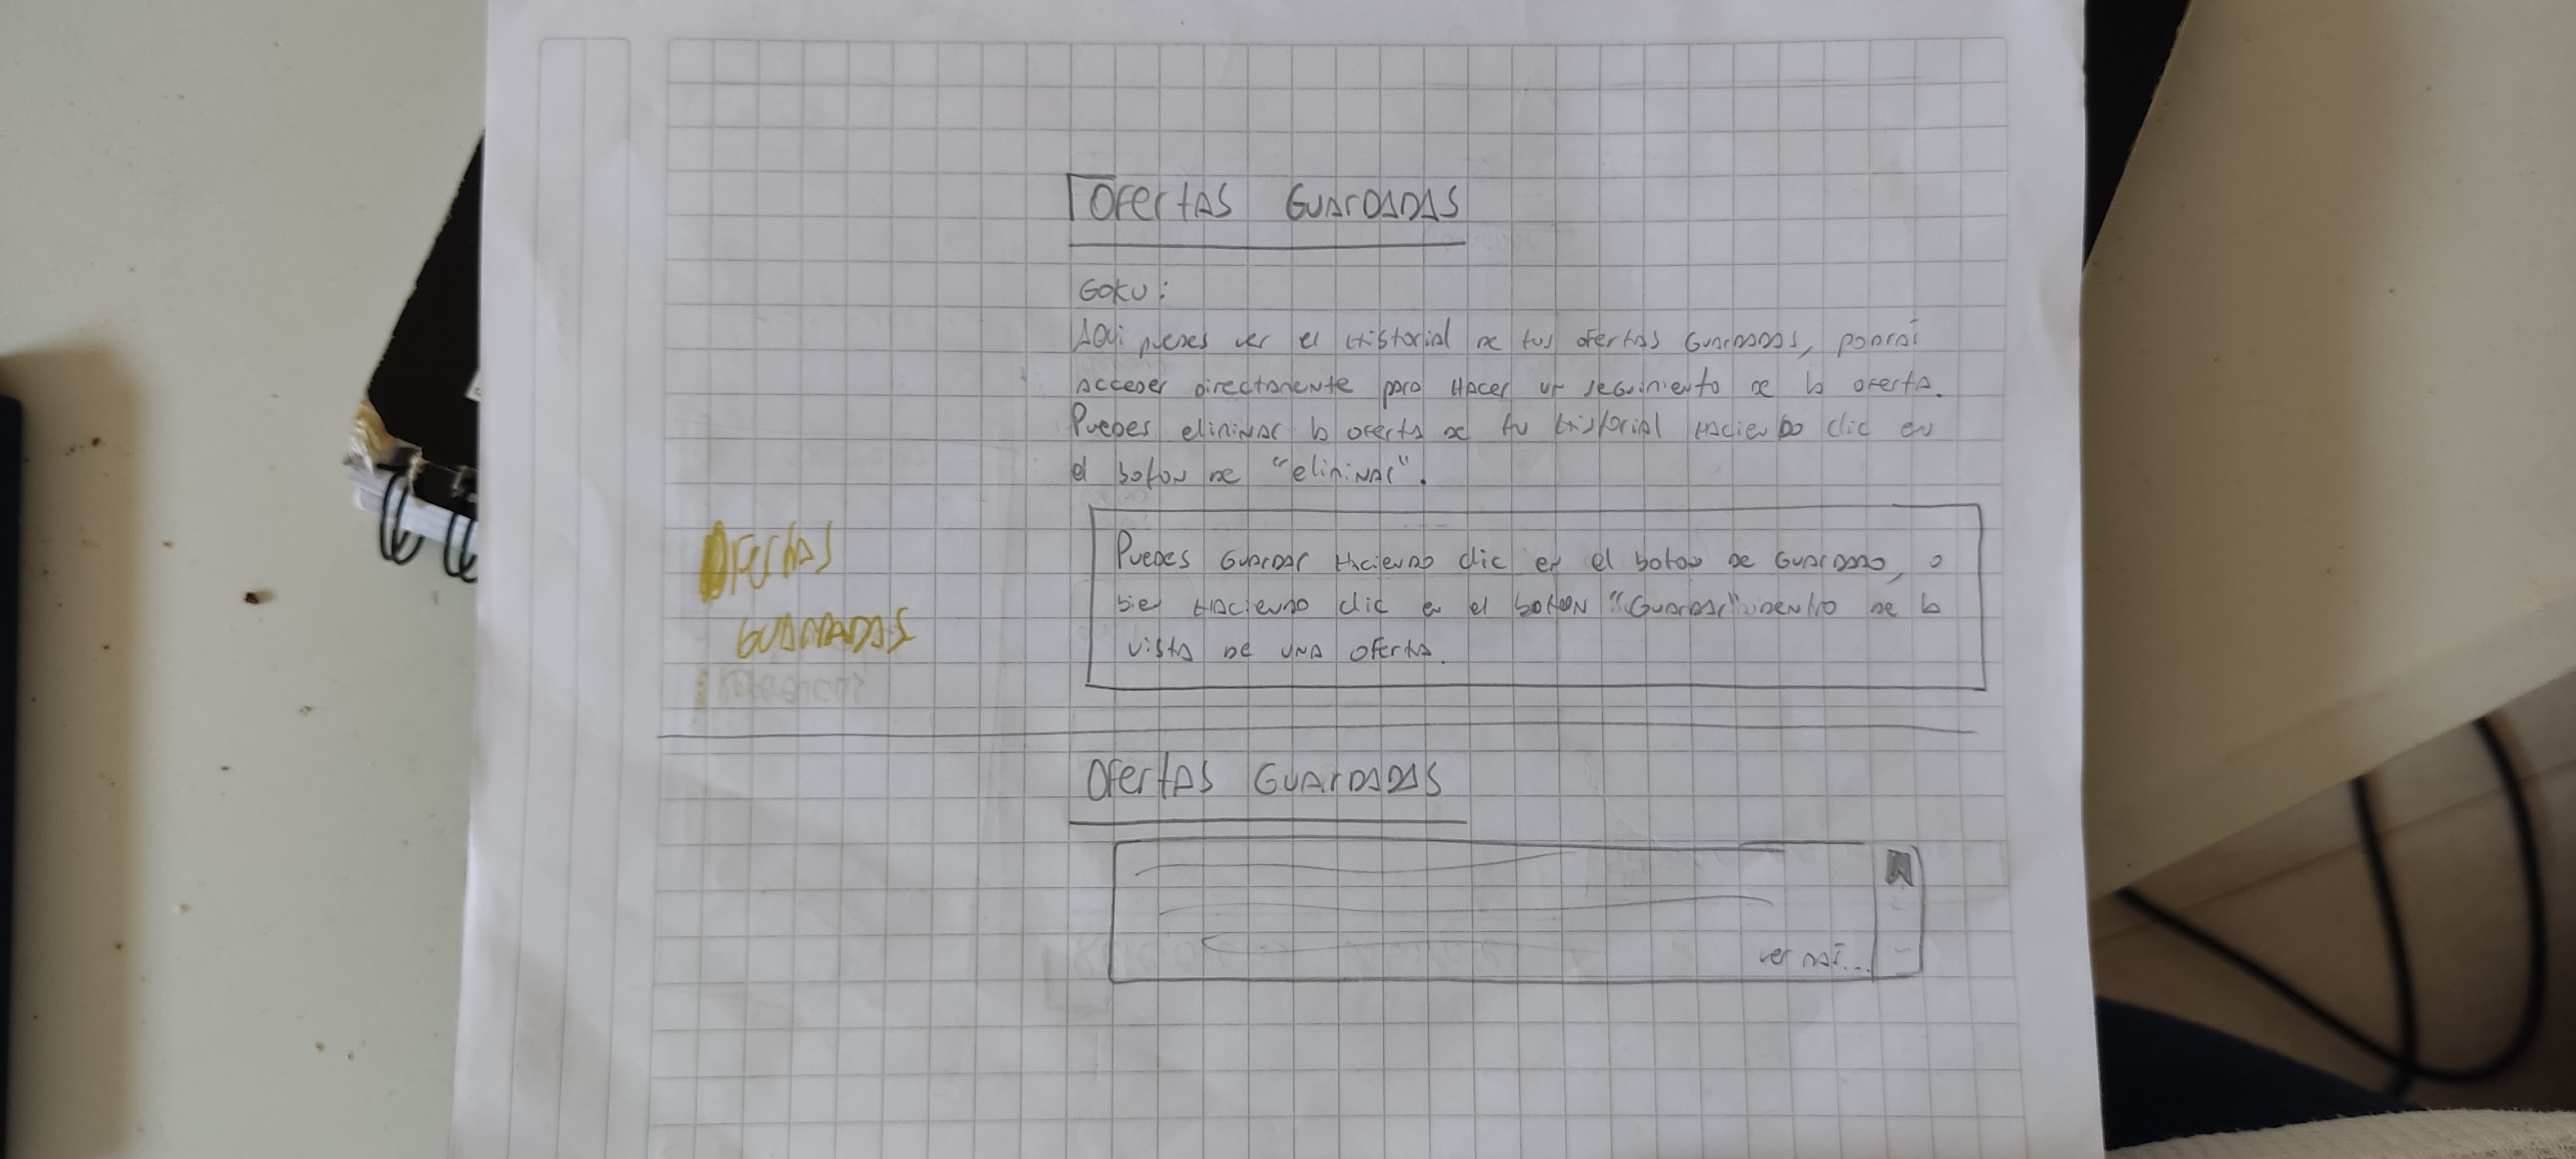 Ofertas Guardadas
Goku:
Aqui puedes ver el historial de tus ofertas guardadas, podrás
acceder directamente para hacer un seguimiento de la oferta.
Puedes eliminar la oferta de tu historial haciendo clic en
el boton de "eliminar".
Ofertas
Guardadas
Puedes guardar haciendo clic en el boton de guardado, o
bien haciendo clic en el boton "Guardar" dentro de la
vista de una oferta.
Ofertas Guardadas
ver más...